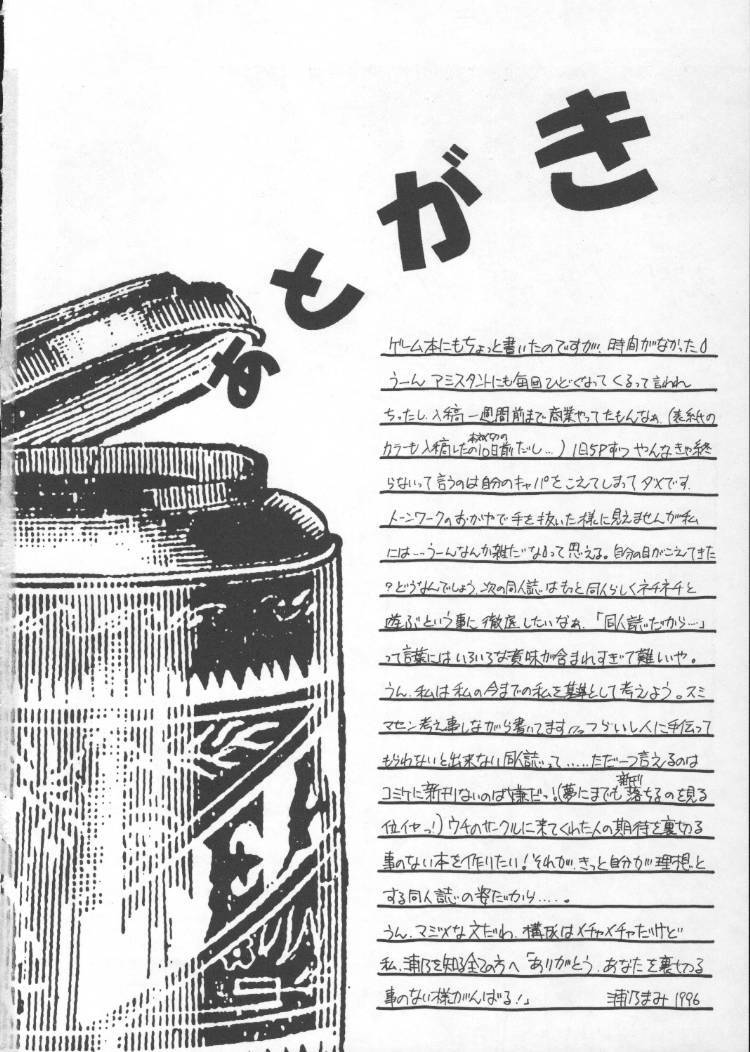 あとがき
ゲーム本にもちょっと書いたのですが、時間がなかった
うーん アシスタントにも毎回ひどくなってくるって言われ
ちったし、入稿一週間前まで商業やってたもんなぁ、(表紙の
カラーも入稿したの10日前だし…) 1日5Pずつ やんなきゃ終
らないって言うのは自分のキャパをこえてしまってダメです。
トーンワークのおかげで手を抜いた様に見えませんが私
には…うーんなんか雑だな って思える。自分の目がこえてきた
?どうなんでしょう、次の同人誌はもっと同人らしくネチネチと
遊ぶという事に徹底したいなぁ、「同人誌だから…」
って言葉にはいろいろな意味が含まれすぎて難しいや。
うん、私は私の今までの私を基準として考えよう。スミ
マセン考え事しながら書いてます つらいし人に手伝って
もらわないと出来ない同人誌って……ただ一つ言えるのは
コミケに新刊ないのは嫌だっ!(夢にまでも新刊落ちるのを見る
位イヤっ!)ウチのサークルに来てくれた人の期待を裏切る
事のない本を作りたい!それが、きっと自分が理想と
する同人誌の姿だから……。
うん、マジメな文だわ、構成はメチャメチャだけど
私、浦乃を知る全ての方へ「ありがとう、あなたを裏切る
事のない様がんばる!」 浦乃まみ 1996